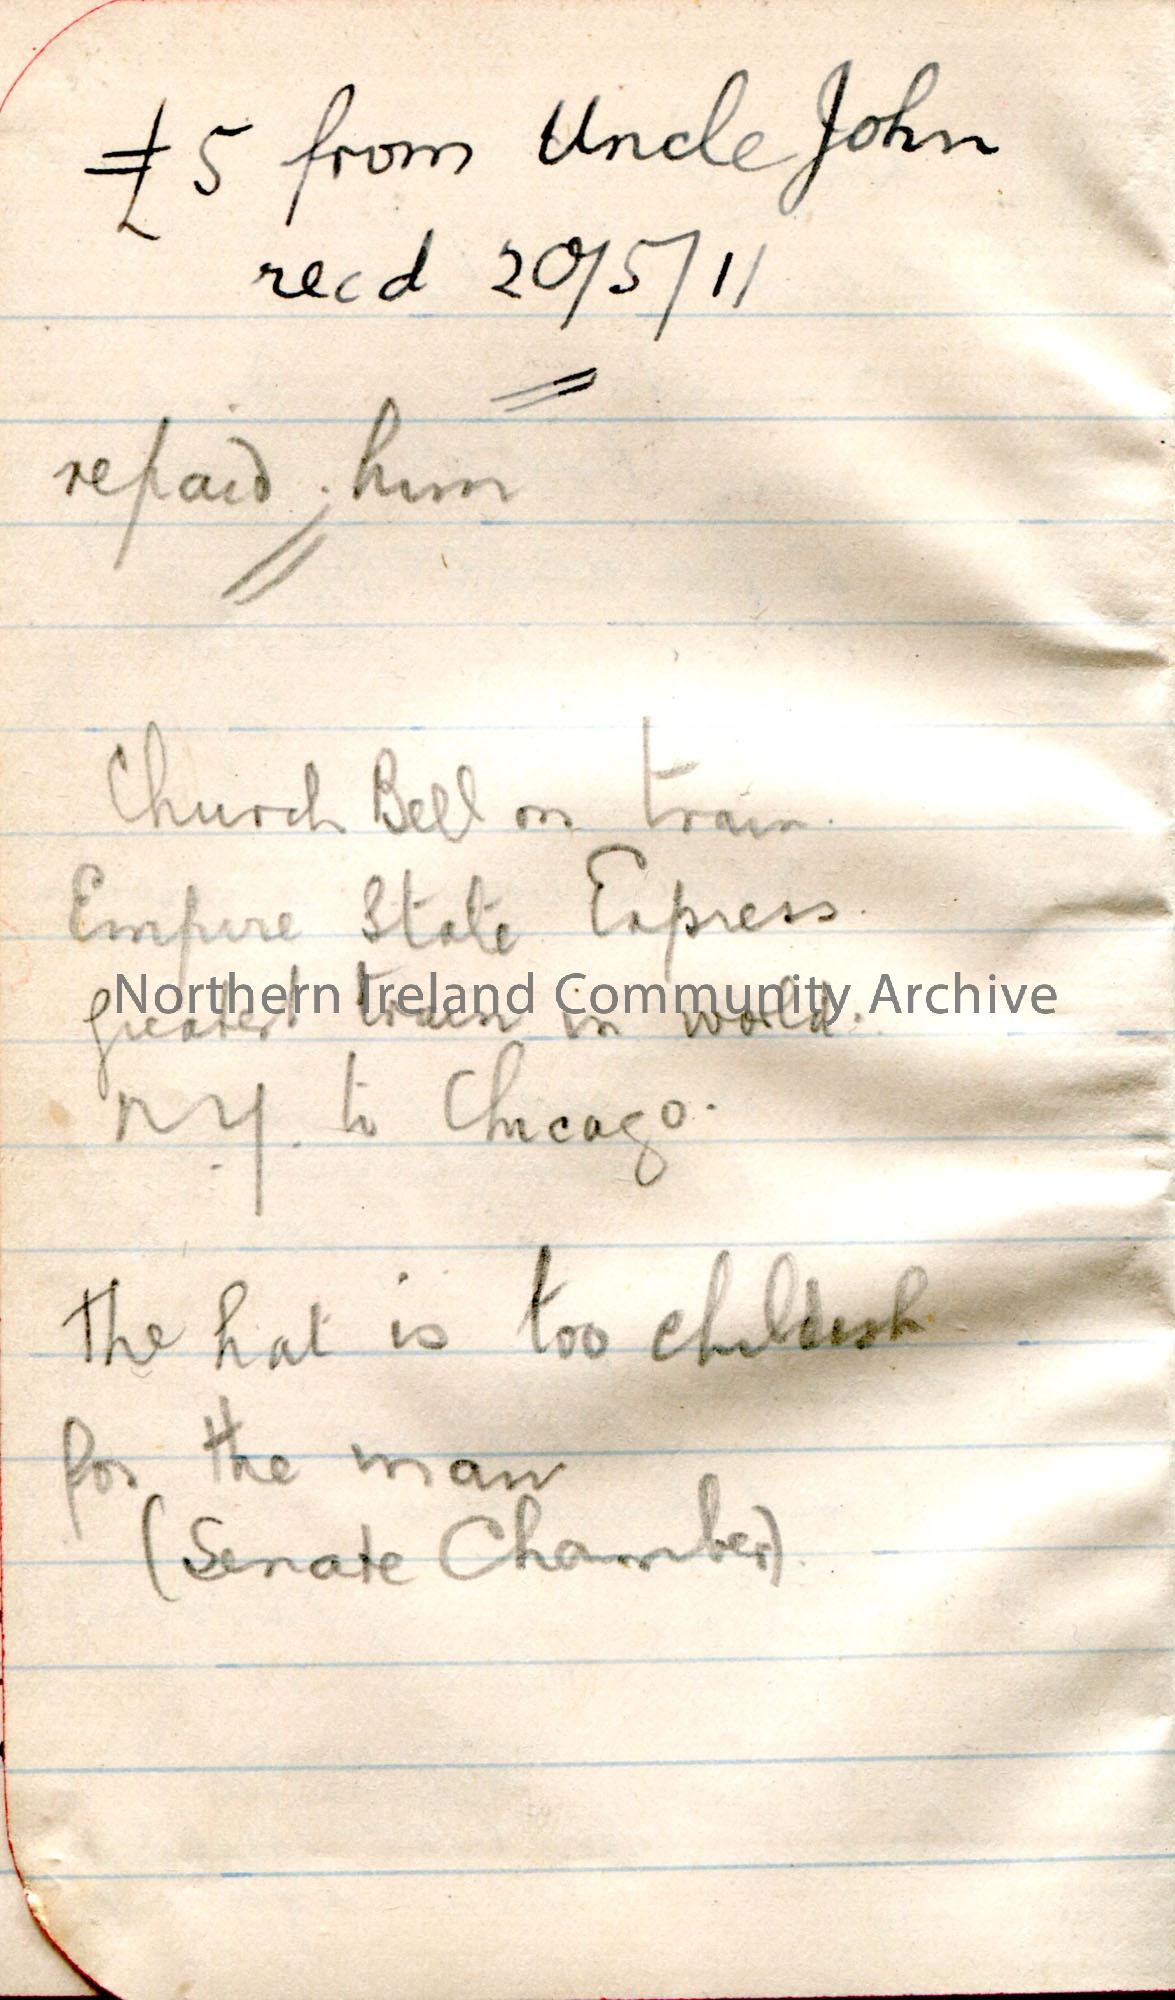 £5 from Uncle John
recd 20/5/11
repaid him
Church Bell on train.
Empire State Express.
Northern Ireland Community Archive
greatest train in world.
N.Y. to Chicago.
The hat is too childish
for the man
(Senate Chamber).